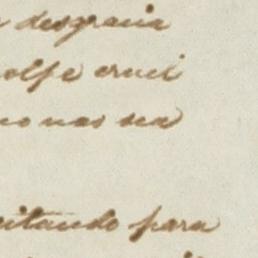 desgracia
golpe cruel
no nos sea
itando para